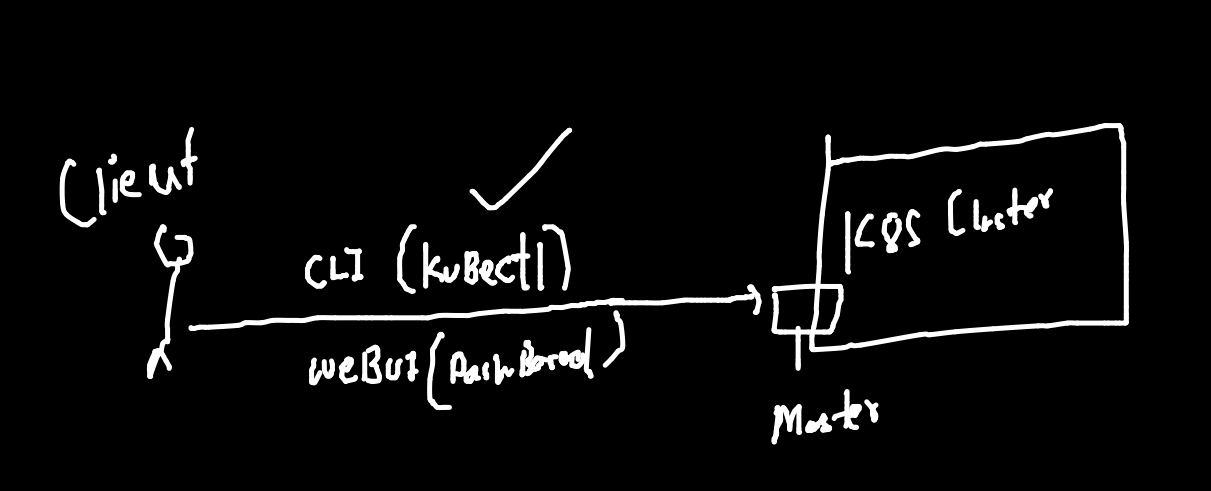 Client
CLI (kuBectl)
weBUI (DashBored)
K8S Cluster
Master